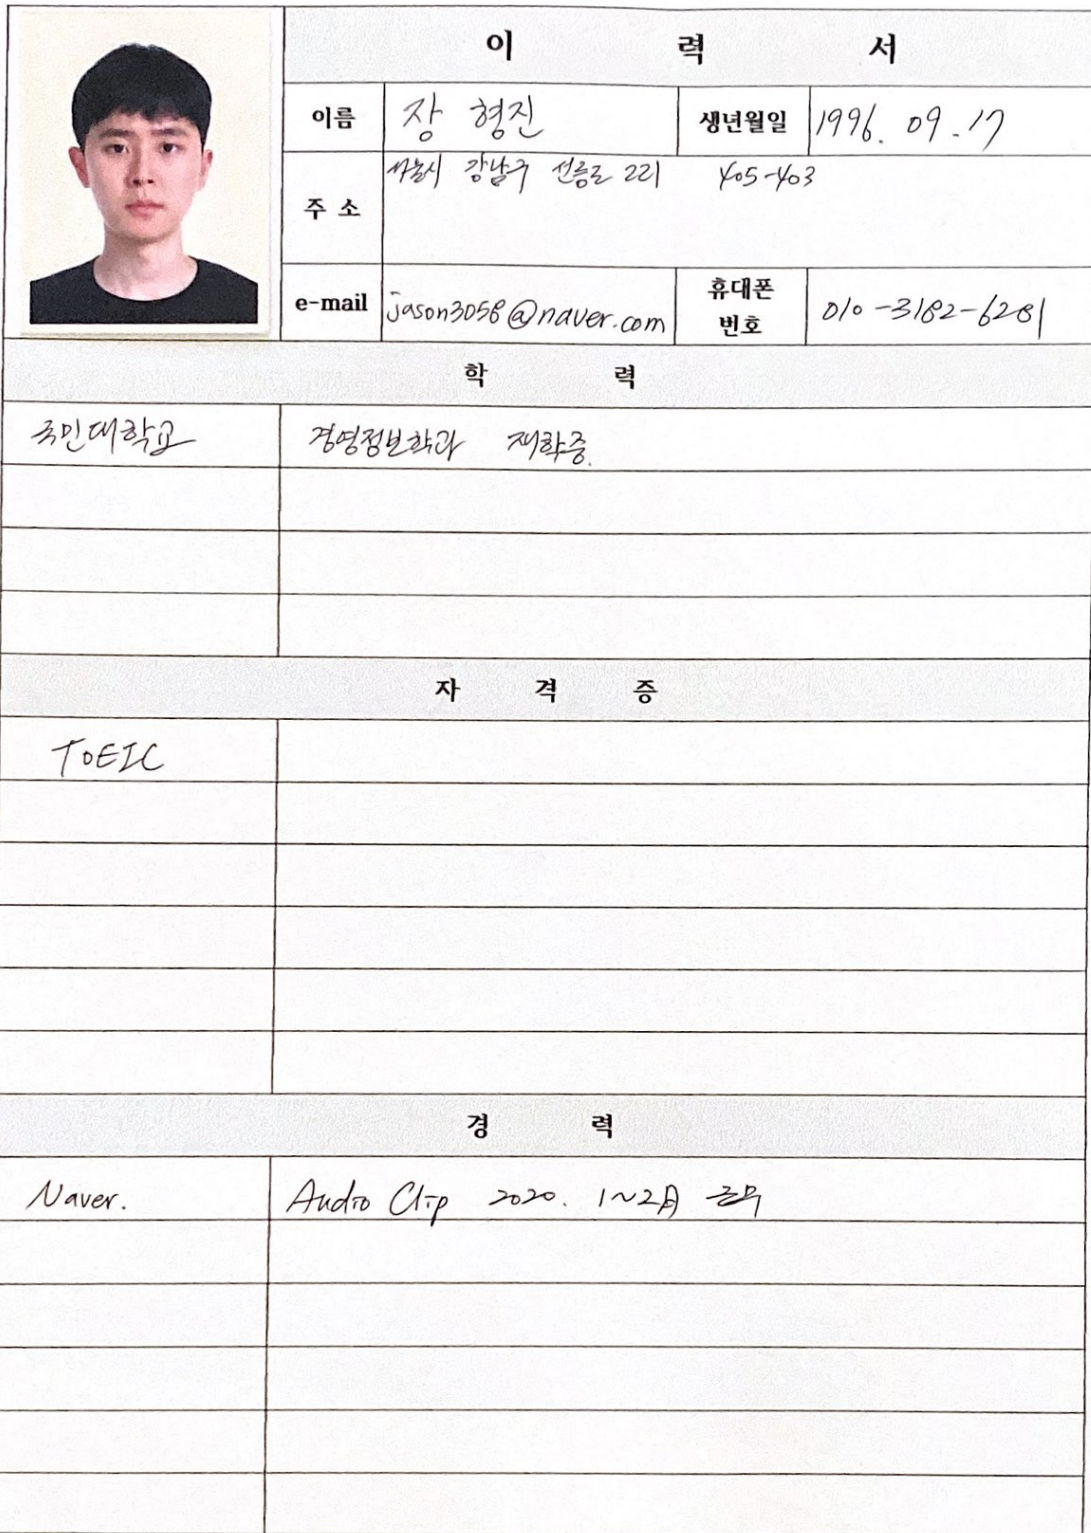 이 력 서
이름 장 형진 생년월일 1996. 09. 17
주 소 서울시 강남구 선릉로 221 405-403
e-mail jason3058@naver.com 휴대폰 번호 010-3182-6281
학 력
국민대학교 경영정보학과 재학중.
자 격 증
TOEIC
경 력
Naver. Audio Clip 2020. 1~2月 근무